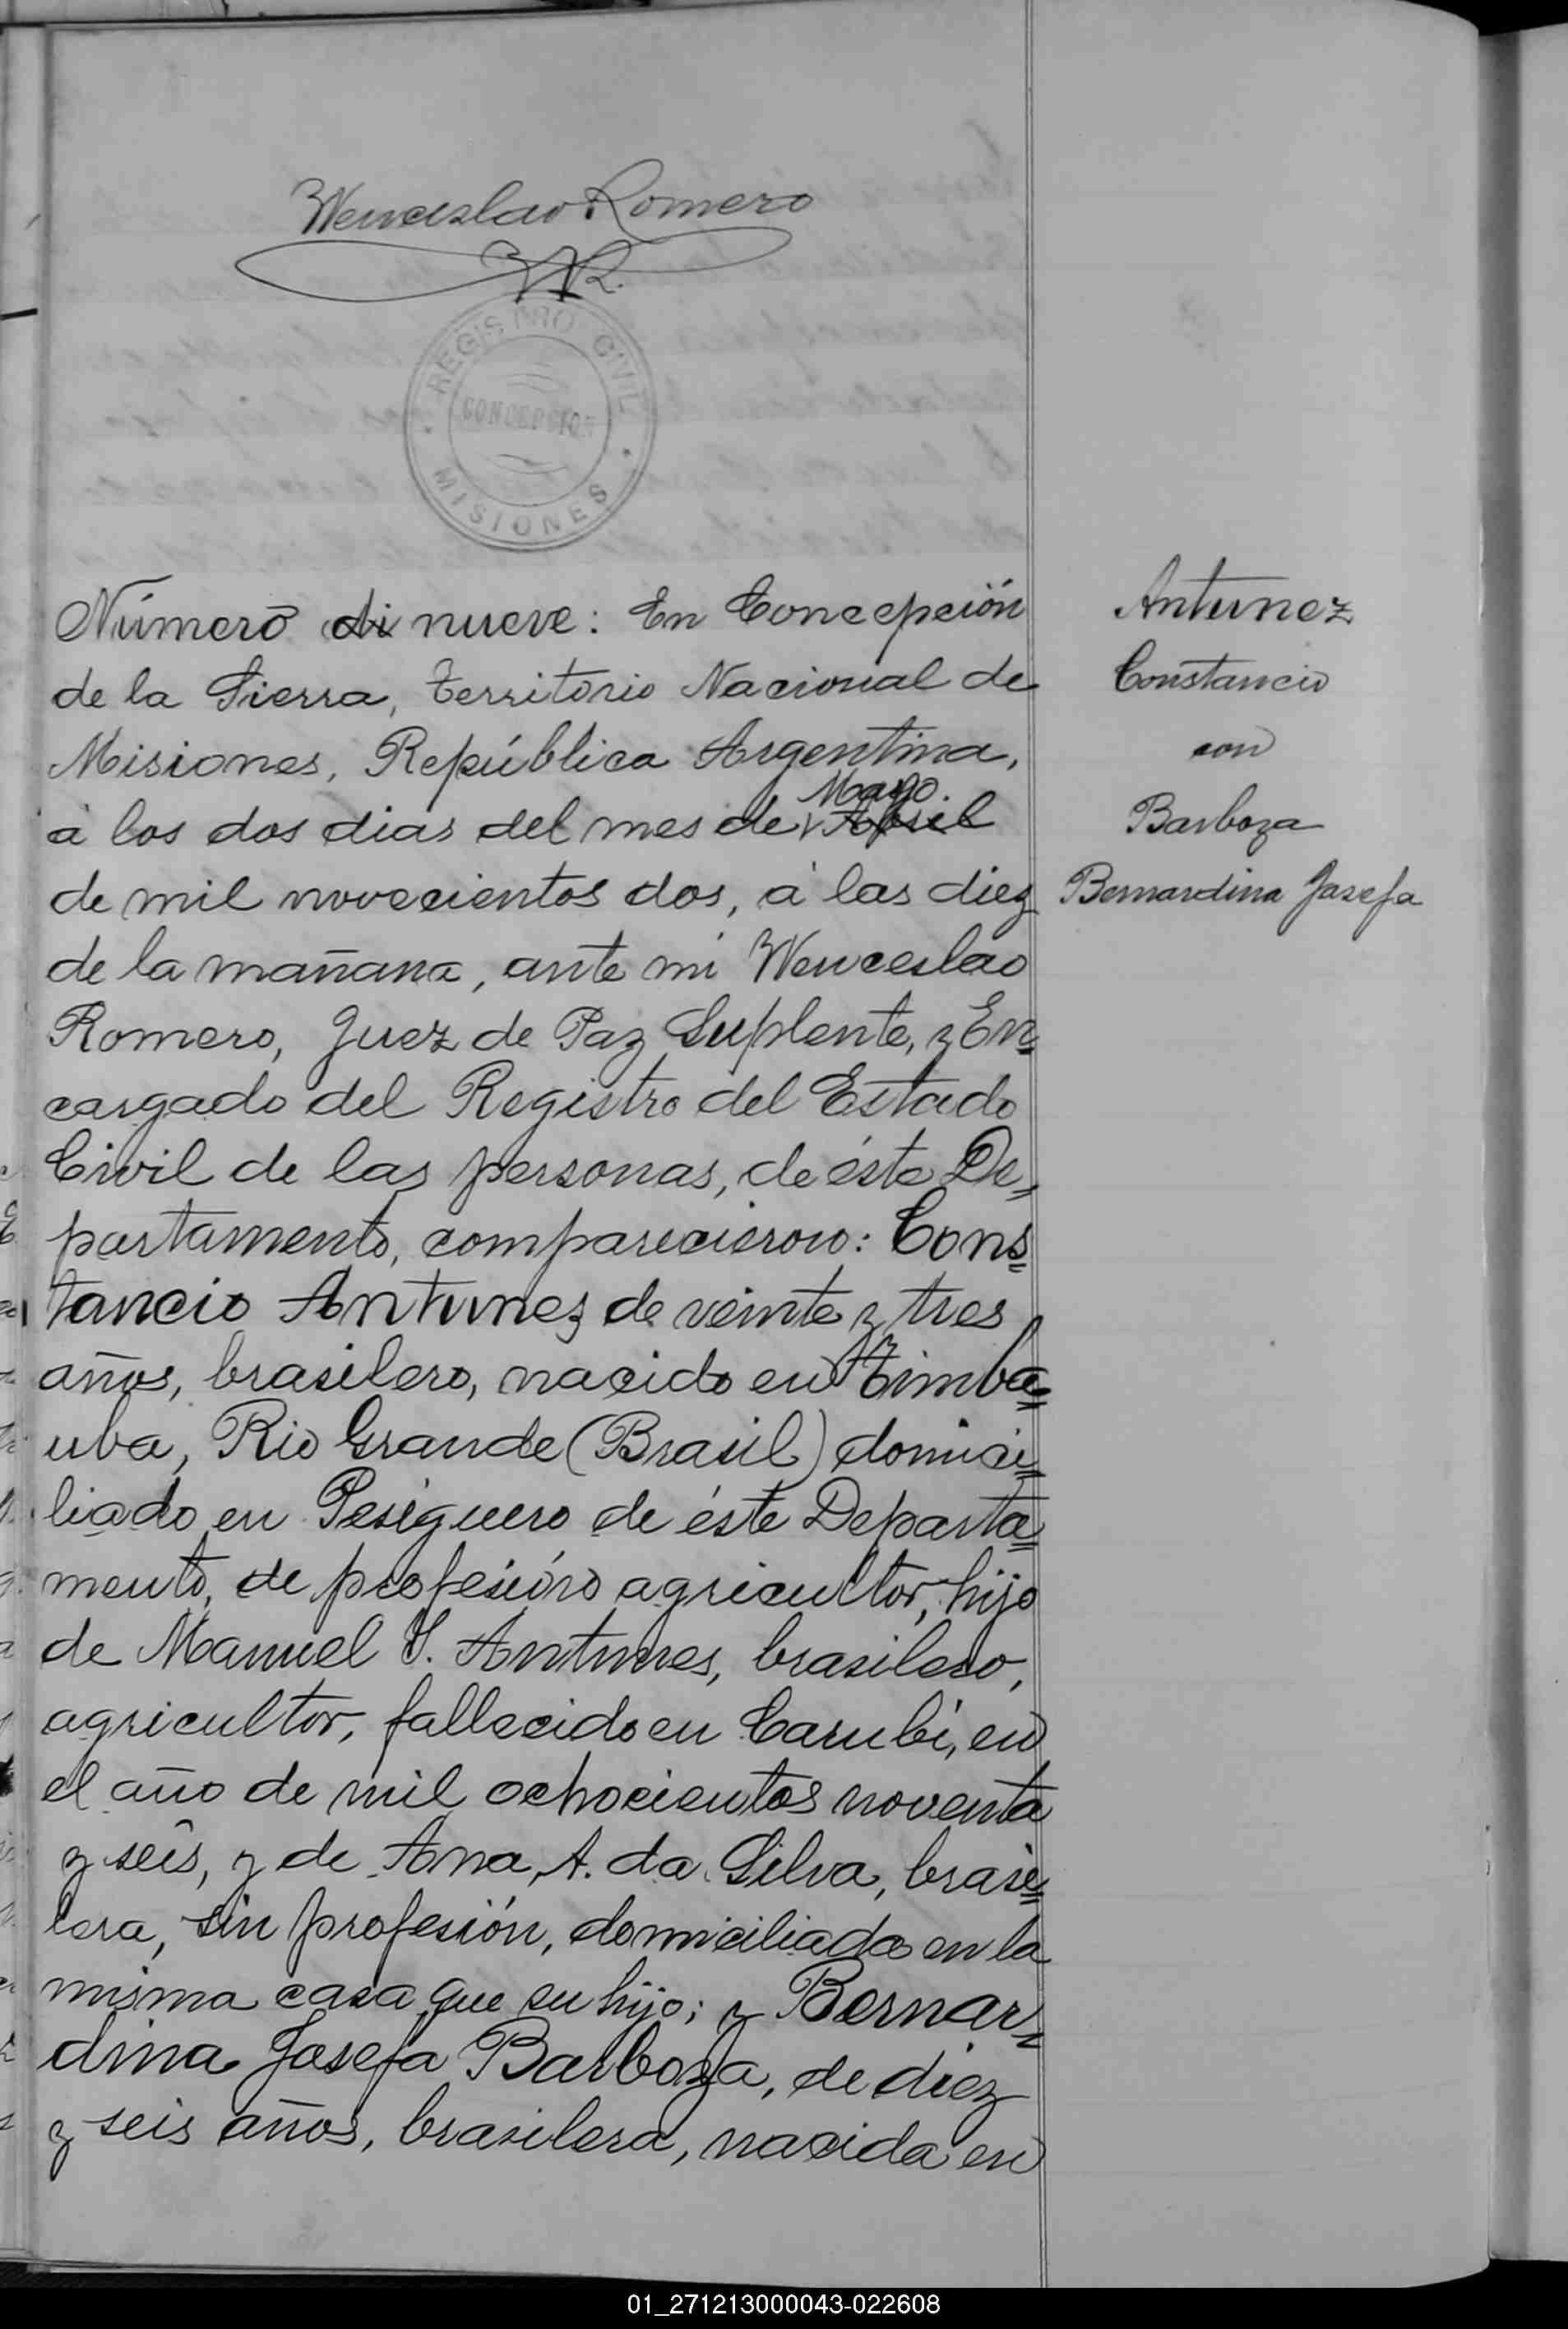 Wenceslao Romero
WR.
REGISTRO CIVIL
CONCEPCION
MISIONES
Número di nueve: En Concepción
de la Sierra, territorio Nacional de
Misiones, República Argentina,
Mayo
á los dos dias del mes de Abril
de mil novecientos dos, á las diez
de la mañana, ante mi Wenceslao
Romero, Juez de Paz Suplente, y En-
cargado del Registro del Estado
Civil de las personas, de éste De-
partamento, comparecieron: Cons=
tancio Antunez de veinte y tres
años, brasilero, nacido en Timba=
uba, Rio Grande (Brasil) domici=
liado en Pesiguero de éste Departa=
mento, de profesión agricultor, hijo
de Manuel S. Antunes, brasilero,
agricultor, fallecido en Carubi, en
el año de mil ochocientos noventa
y seis, y de Ana A. da Silva, brasi=
lera, sin profesión, domiciliada en la
misma casa que su hijo; y Bernar=
dina Josefa Barboza, de diez
y seis años, brasilera, nacida en
Antunez
Constancio
con
Barboza
Bernardina Josefa
01_271213000043-022608